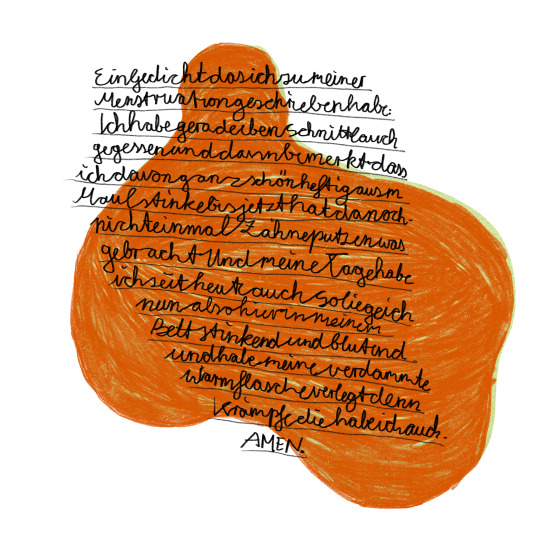 Ein Gedicht das ich zu meiner
Menstruation geschrieben habe:
Ich habe gerade eben Schnittlauch
gegessen und dann bemerkt dass
ich davon ganz schön heftig aus m
Maul stinke bis jetzt hat da noch
nicht einmal Zähneputzen was
gebracht Und meine Tage habe
ich seit heute auch so liege ich
nun also hier in meinem
Bett stinkend und blutend
und habe meine verdammte
Wärmflasche verlegt denn
Krämpfe die habe ich auch.
AMEN.